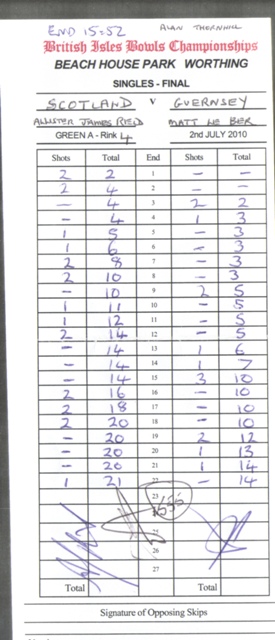 END 15=52 ALAN THORNHILL
British Isles Bowls Championships
BEACH HOUSE PARK WORTHING
SINGLES - FINAL
SCOTLAND V GUERNSEY
ALLISTER JAMES REID MATT LE BER
GREEN A - Rink 4 2nd JULY 2010
Shots Total End Shots Total
2 2 1 - -
2 4 2 - -
- 4 3 2 2
- 4 4 1 3
1 5 5 - 3
1 6 6 - 3
2 8 7 - 3
2 10 8 - 3
- 10 9 2 5
1 11 10 - 5
1 12 11 - 5
2 14 12 - 5
- 14 13 1 6
- 14 14 1 7
- 14 15 3 10
2 16 16 - 10
2 18 17 - 10
2 20 18 - 10
- 20 19 2 12
- 20 20 1 13
- 20 21 1 14
1 21 22 - 14
23
26
27
Total Total
Signature of Opposing Skips